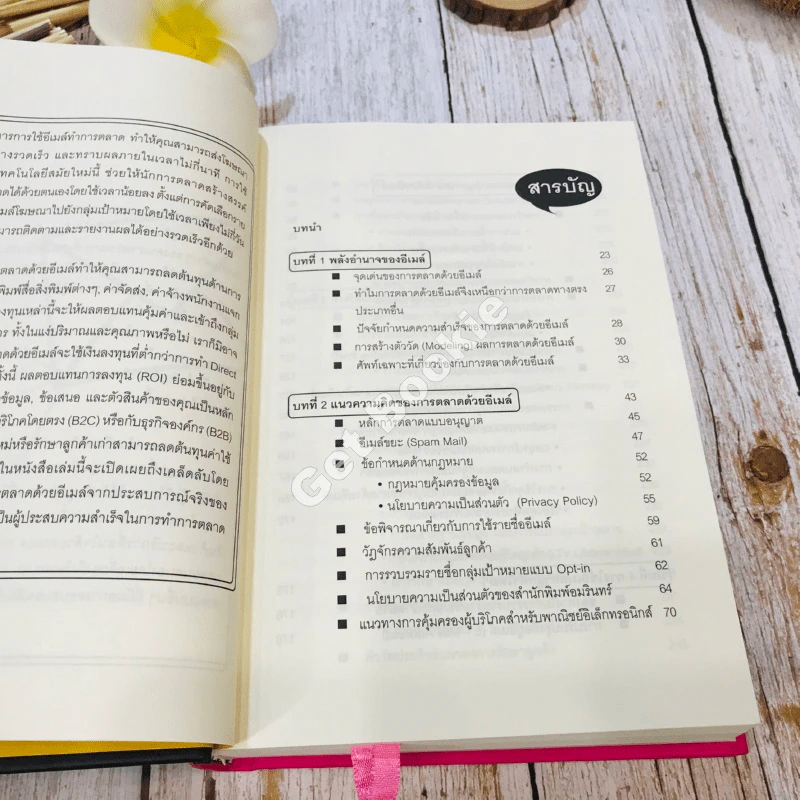 ารการใช้อีเมล์ทำการตลาด ทำให้คุณสามารถส่งโฆษณา
างรวดเร็ว และทราบผลภายในเวลาไม่กี่นาที การใช้
ทคโนโลยีสมัยใหม่นี้ ช่วยให้นักการตลาดสร้างสรรค์
าดได้ด้วยตนเองโดยใช้เวลาน้อยลง ตั้งแต่การคัดเลือกราย
มล์โฆษณาไปยังกลุ่มเป้าหมายโดยใช้เวลาเพียงไม่กี่วัน
มารถติดตามและรายงานผลได้อย่างรวดเร็วอีกด้วย
ตลาดด้วยอีเมล์ทำให้คุณสามารถลดต้นทุนด้านการ
พิมพ์สื่อสิ่งพิมพ์ต่างๆ, ค่าจัดส่ง, ค่าจ้างพนักงานแจก
งทุนเหล่านี้จะให้ผลตอบแทนคุ้มค่าและเข้าถึงกลุ่ม
ร ทั้งในแง่ปริมาณและคุณภาพหรือไม่ เราก็มิอาจ
ลาดด้วยอีเมล์จะใช้เงินลงทุนที่ต่ำกว่าการทำ Direct
ั้งนี้ ผลตอบแทนการลงทุน (ROI) ย่อมขึ้นอยู่กับ
ข้อมูล, ข้อเสนอ และตัวสินค้าของคุณเป็นหลัก
ริโภคโดยตรง (B2C) หรือกับธุรกิจองค์กร (B2B)
หม่หรือรักษาลูกค้าเก่าสามารถลดต้นทุนค่าใช้
ในหนังสือเล่มนี้จะเปิดเผยถึงเคล็ดลับโดย
ตลาดด้วยอีเมล์จากประสบการณ์จริงของ
ป็นผู้ประสบความสำเร็จในการทำการตลาด
สารบัญ
บทนำ
บทที่ 1 พลังอำนาจของอีเมล์ 23
■ จุดเด่นของการตลาดด้วยอีเมล์ 26
■ ทำไมการตลาดด้วยอีเมล์จึงเหนือกว่าการตลาดทางตรง 27
ประเภทอื่น
■ ปัจจัยกำหนดความสำเร็จของการตลาดด้วยอีเมล์ 28
■ การสร้างตัววัด (Modeling) ผลการตลาดด้วยอีเมล์ 30
■ ศัพท์เฉพาะที่เกี่ยวข้องกับการตลาดด้วยอีเมล์ 33
บทที่ 2 แนวความคิดของการตลาดด้วยอีเมล์ 43
■ หลักการตลาดแบบอนุญาต 45
■ อีเมล์ขยะ (Spam Mail) 47
■ ข้อกำหนดด้านกฎหมาย 52
• กฎหมายคุ้มครองข้อมูล 52
• นโยบายความเป็นส่วนตัว (Privacy Policy) 55
■ ข้อพิจารณาเกี่ยวกับการใช้รายชื่ออีเมล์ 59
■ วัฏจักรความสัมพันธ์ลูกค้า 61
■ การรวบรวมรายชื่อกลุ่มเป้าหมายแบบ Opt-in 62
■ นโยบายความเป็นส่วนตัวของสำนักพิมพ์อมรินทร์ 64
■ แนวทางการคุ้มครองผู้บริโภคสำหรับพาณิชย์อิเล็กทรอนิกส์ 70
Got Bookie